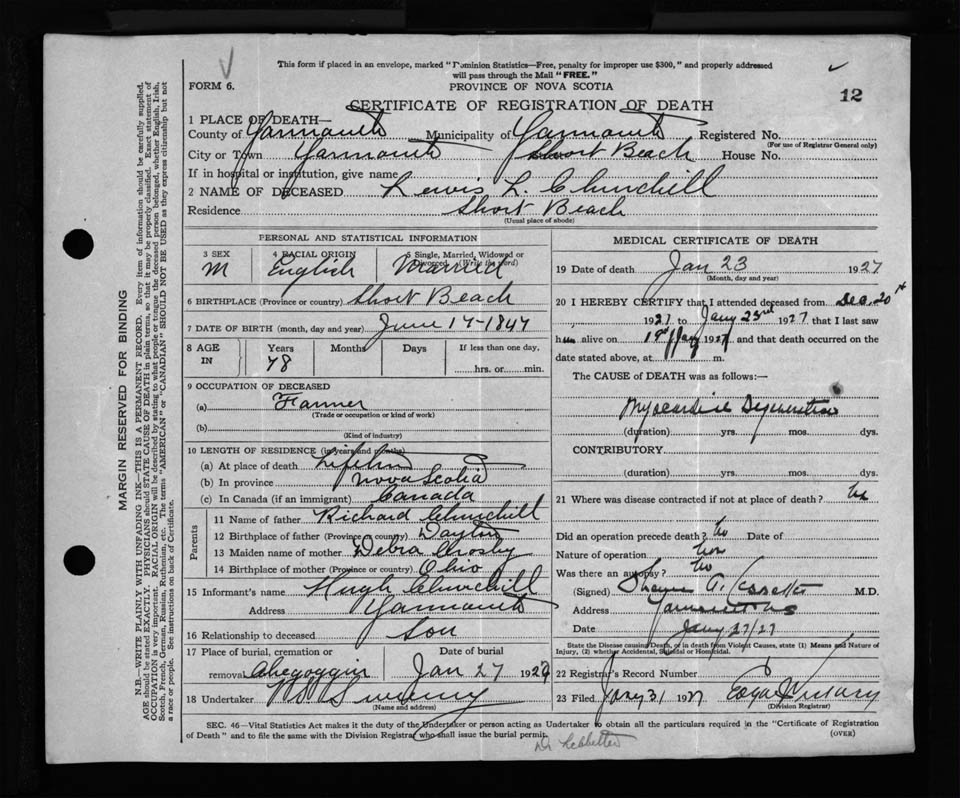 This form if placed in an envelope, marked "Dominion Statistics—Free, penalty for improper use $300," and properly addressed
will pass through the Mail "FREE."
FORM 6.
PROVINCE OF NOVA SCOTIA
12
CERTIFICATE OF REGISTRATION OF DEATH
1 PLACE OF DEATH—
County of Yarmouth Municipality of Yarmouth Registered No.
(For use of Registrar General only)
City or Town Yarmouth Short Beach House No.
If in hospital or institution, give name
2 NAME OF DECEASED Lewis L. Churchill
Residence Short Beach
(Usual place of abode)
PERSONAL AND STATISTICAL INFORMATION
3 SEX 4 RACIAL ORIGIN 5 Single, Married, Widowed or Divorced (Write the word)
M English Married
6 BIRTHPLACE (Province or country) Short Beach
7 DATE OF BIRTH (month, day and year) June 17-1847
8 AGE IN Years Months Days If less than one day,
78 hrs. or min.
9 OCCUPATION OF DECEASED
(a) Farmer
(Trade or occupation or kind of work)
(b)
(Kind of industry)
10 LENGTH OF RESIDENCE (in years and months)
(a) At place of death Lifetime
(b) In province Nova Scotia
(c) In Canada (if an immigrant) Canada
Parents
11 Name of father Richard Churchill
12 Birthplace of father (Province or country) Dayton
13 Maiden name of mother Debra Crosby
14 Birthplace of mother (Province or country) Ohio
15 Informant's name Hugh Churchill
Address Yarmouth
16 Relationship to deceased son
17 Place of burial, cremation or removal Date of burial
Chegoggin Jan 27 192
18 Undertaker Sweeny
(Name and address)
MEDICAL CERTIFICATE OF DEATH
19 Date of death Jan 23 1927
(Month, day and year)
20 I HEREBY CERTIFY that I attended deceased from Dec. 20th
1927 to Jany 23rd 1927 that I last saw
him alive on 19th Jany 1927 and that death occurred on the
date stated above, at m.
The CAUSE of DEATH was as follows:—
Myocardial Degeneration
(duration) yrs. mos. dys.
CONTRIBUTORY
(duration) yrs. mos. dys.
21 Where was disease contracted if not at place of death?
Did an operation precede death? no Date of
Nature of operation
Was there an autopsy? no
(Signed) M.D.
Address Yarmouth NS
Date Jany 27/27
State the Disease causing Death, or in death from Violent Causes, state (1) Means and Nature of
Injury, (2) whether Accidental, Suicidal or Homicidal.
22 Registrar's Record Number
23 Filed Jany 31 1927 Edgar
(Division Registrar)
SEC. 46—Vital Statistics Act makes it the duty of the Undertaker or person acting as Undertaker to obtain all the particulars required in the "Certificate of Registration
of Death" and to file the same with the Division Registrar who shall issue the burial permit. (OVER)
MARGIN RESERVED FOR BINDING
N.B.—WRITE PLAINLY WITH UNFADING INK—THIS IS A PERMANENT RECORD. Every item of information should be carefully supplied.
AGE should be stated EXACTLY. PHYSICIANS should STATE CAUSE OF DEATH in plain terms, so that it may be properly classified. Exact statement of
OCCUPATION is very important. RACIAL ORIGIN will be described by stating to what people or tongue the deceased person belonged, whether English, Irish,
Scotch, French, German, Russian, Ruthenian, etc. The terms "AMERICAN" or "CANADIAN" SHOULD NOT BE USED as they express citizenship but not
a race or people. See instructions on back of Certificate.